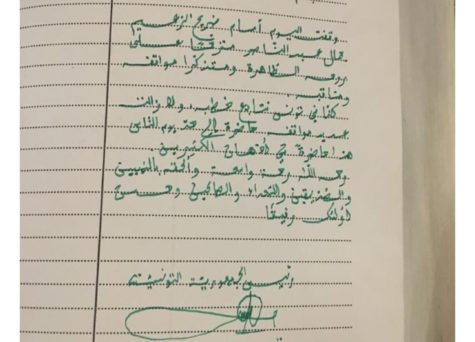 وقفت اليوم أمام ضريح الزعيم
جمال عبد الناصر مترحّما على
روحه الطاهرة ومتذكرا مواقفه
ومناقبه.
كنا في تونس نتابع خطبه، ولا زالت
عديد مواقفه حاضرة إلى حد يوم الناس
هذا حاضرة في أذهان الكثيرين.
رحمه الله رحمة واسعة وألحقه بالنبيين
والصديقين والشهداء والصالحين وحسن
أولئك رفيقا
رئيس الجمهورية التونسية